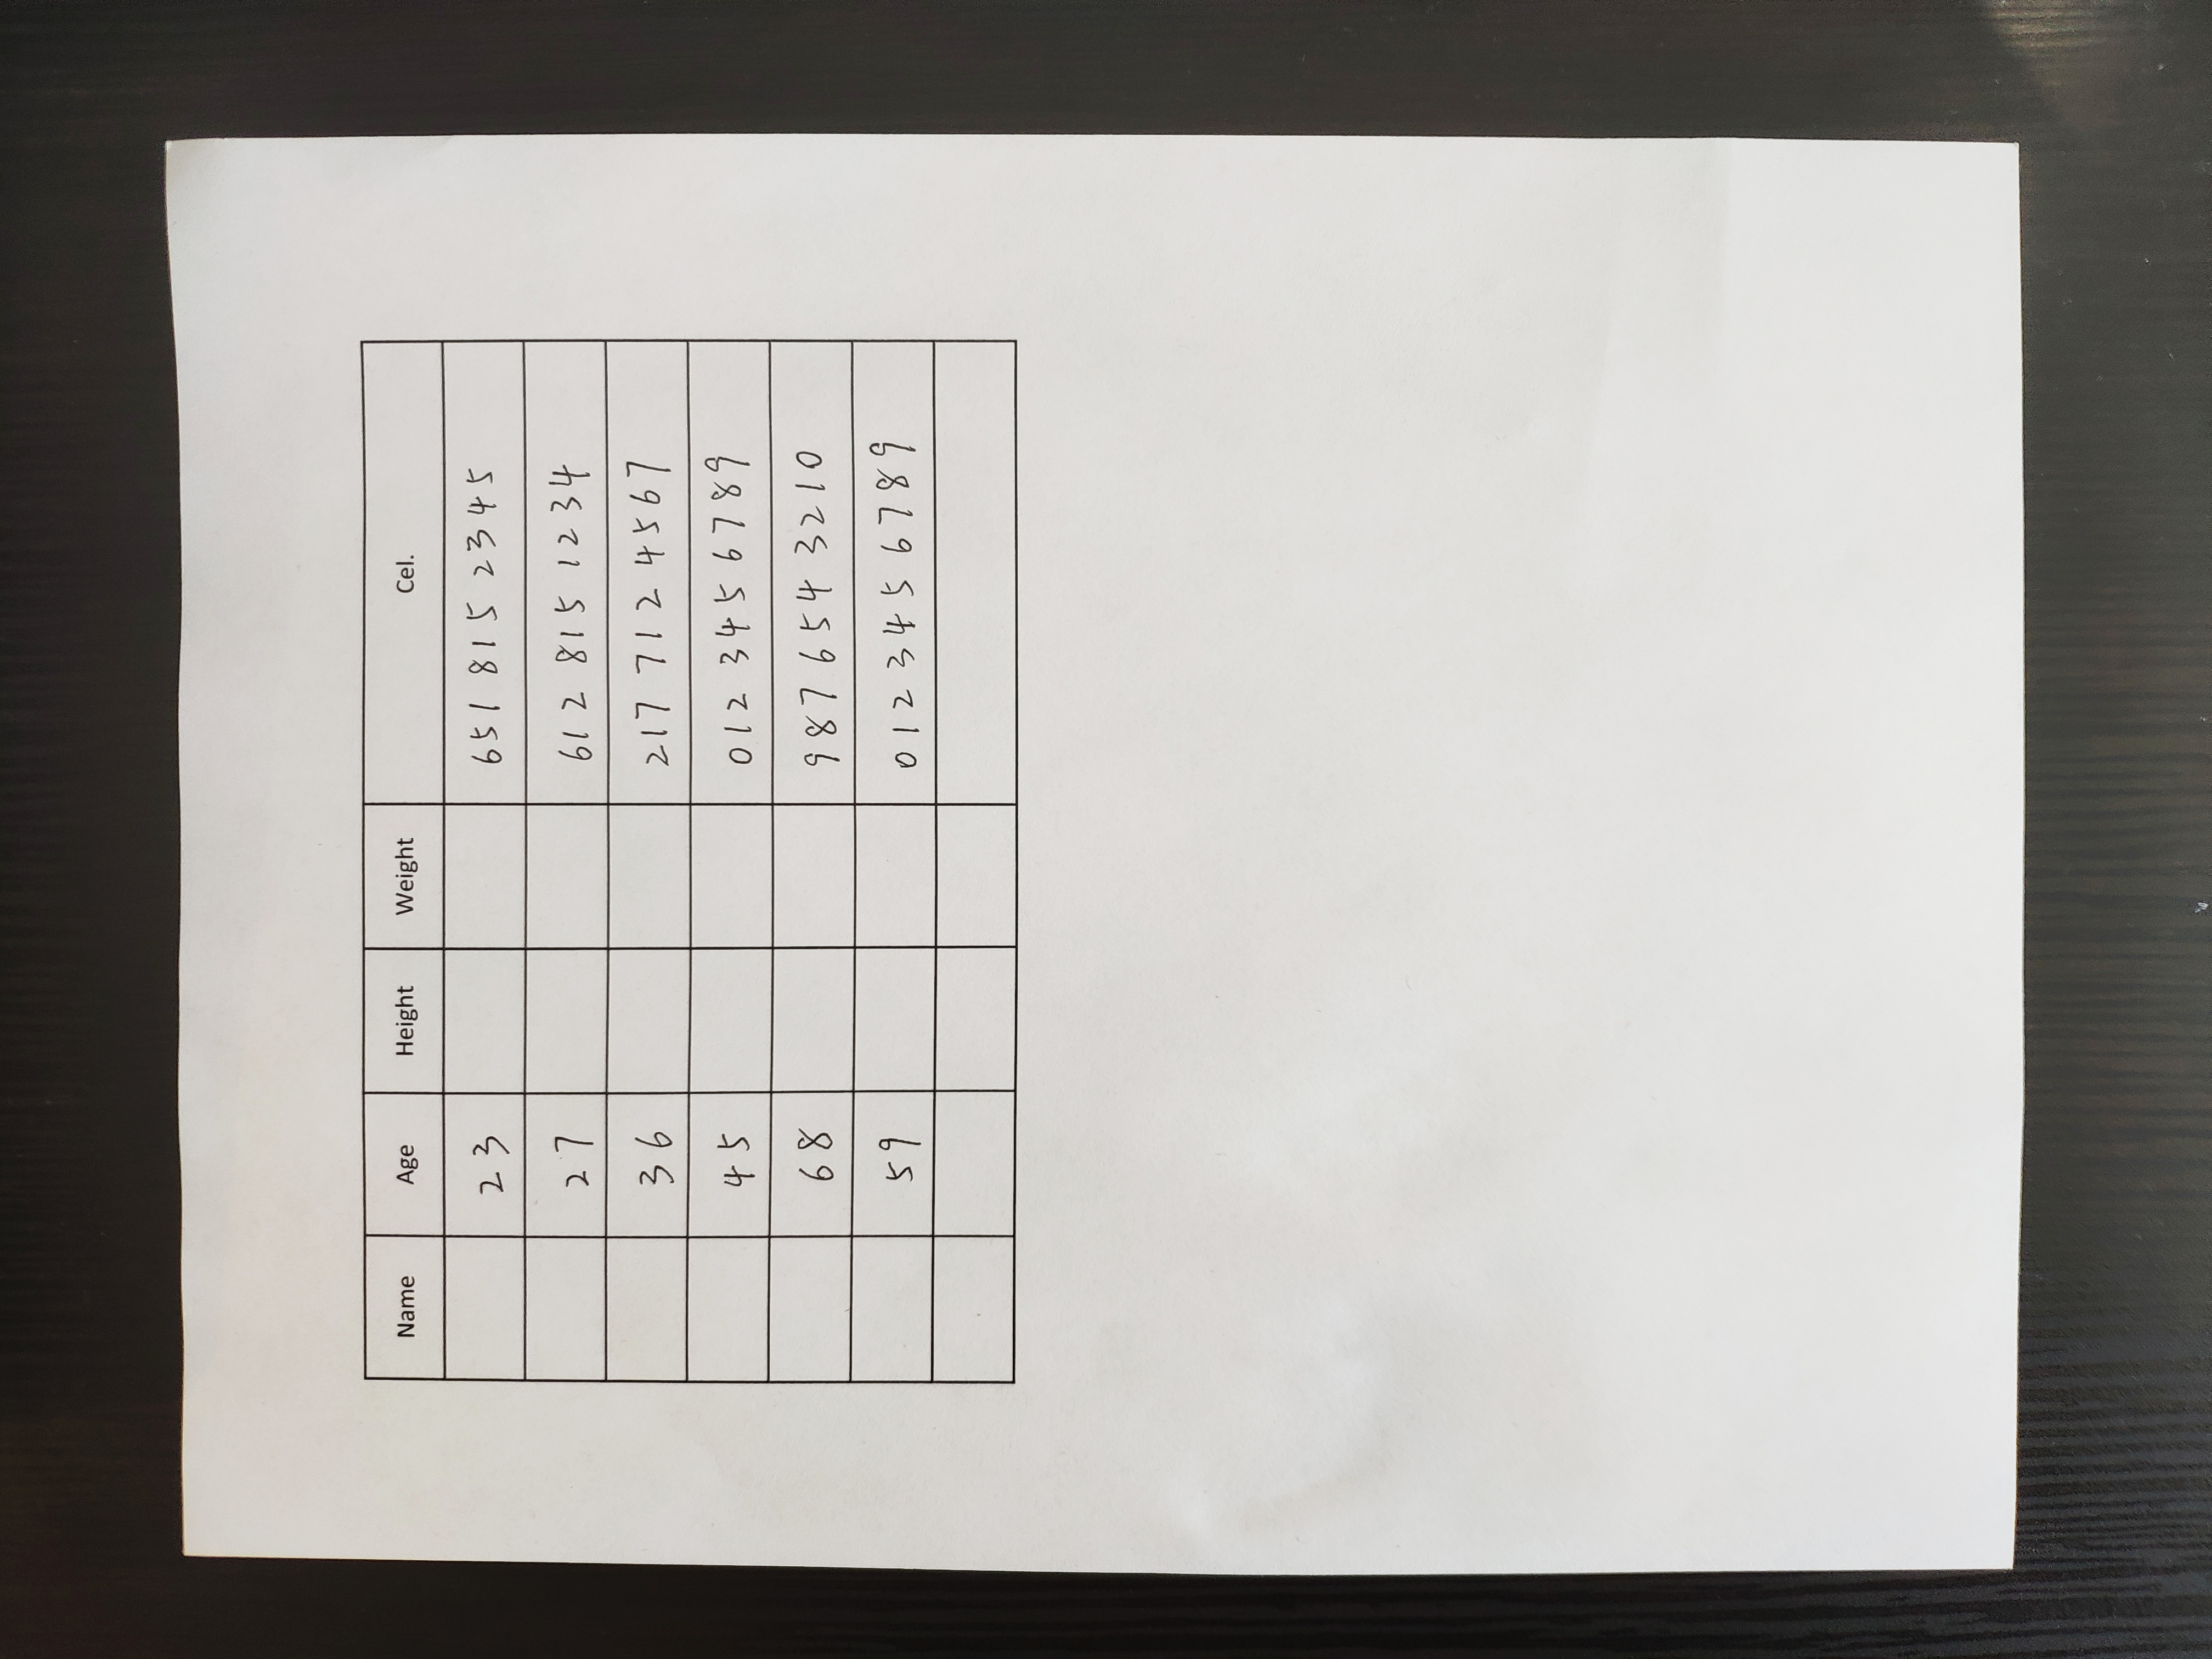 Name Age Height Weight Cel.
23 651 815 2345
27 612 815 1234
36 217 712 4567
45 012 345 6789
68 987 654 3210
59 012 345 6789